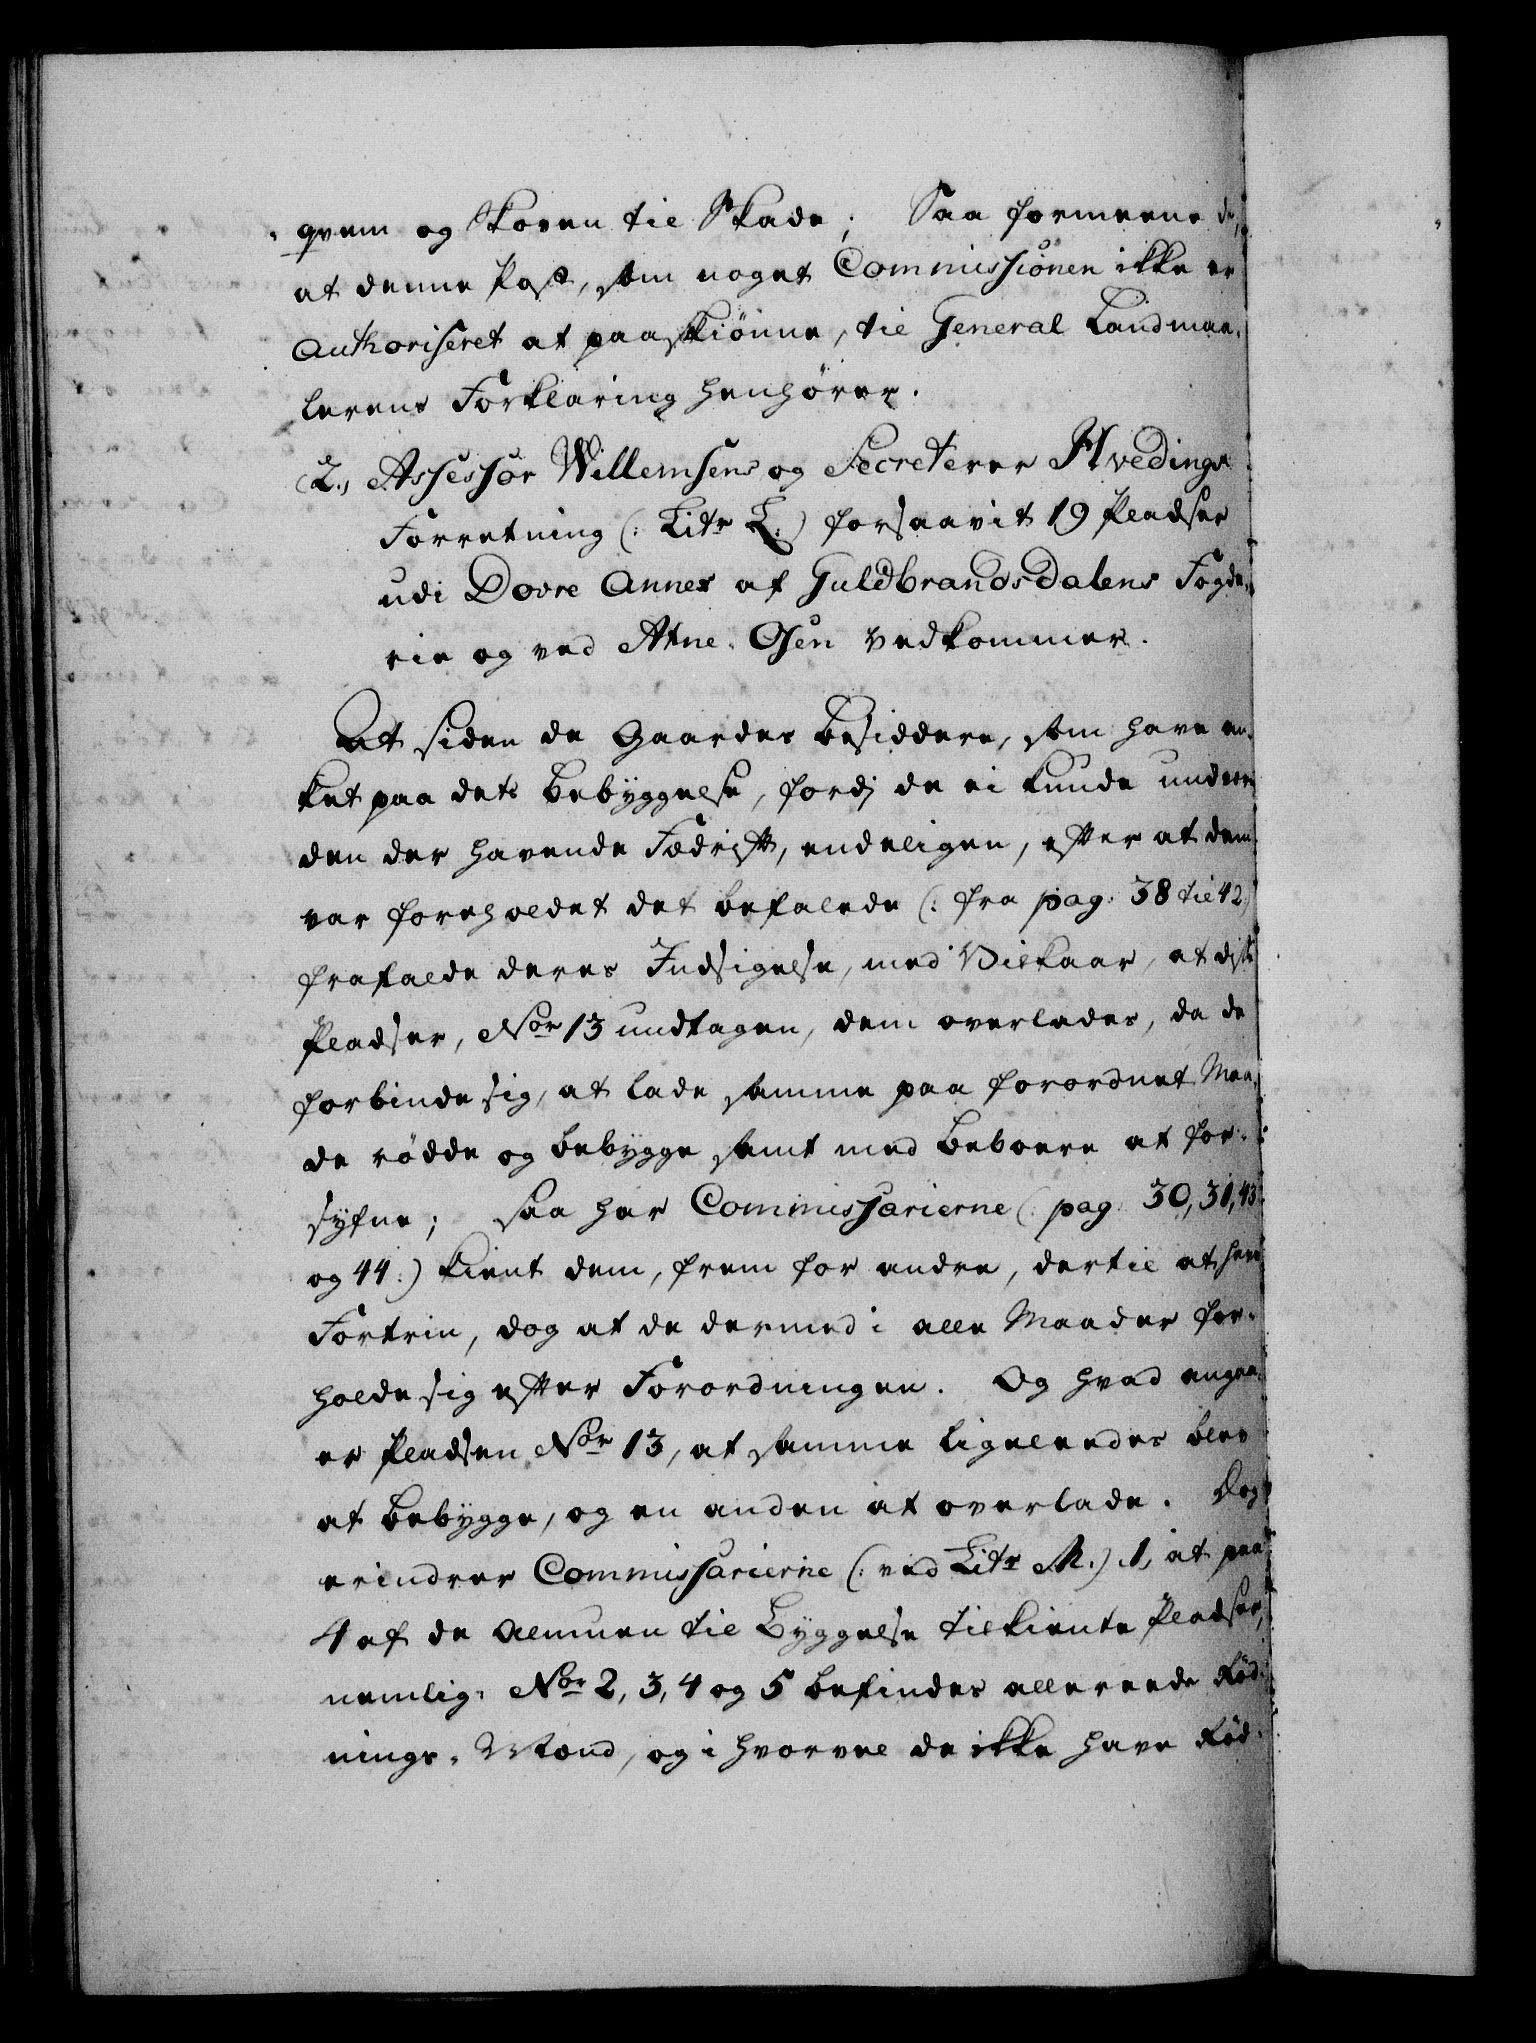 qvem og Skoven til Skade; Saa formeene de,
at denne Post, som noget Commissionen ikke er
Authoriseret at paaskiönne, til General Landmaa-
lerens Forklaring henhörer.
2., Assessor Willemsens og Secreterer Hvedings
Forretning (: Litr L.) forsaavit 19 Pladser
udi Dovre Annex af Guldbrandsdalens Fogde-
rie og ved Atne-Osen vedkommer.
At siden de Gaardes Besiddere, som have an-
ket paa dets Bebyggelse, fordj de ei kunde undvære
den der havende Fædrift, endeligen, efter at dem
var foreholdet det befalede (: fra pag: 38 til 42.)
frafalde deres Indsigelse, med Vilkaar, at disse
Pladser, Nor 13 undtagen, dem overlades, da de
forbinde sig, at lade samme paa forordnet Maa-
de rödde og bebygge samt med Beboere at for-
syfne; saa har Commissarierne (: pag. 30, 31, 43
og 44:) kient dem, frem for andre, dertil at have
Fortrin, dog at de dermed i alle Maader for-
holde sig efter Forordningen. Og hvad angaa-
er Pladsen Nor 13, at samme ligeleedes blev
at bebygge, og en anden at overlade. Dog
erindrer Commissarierne (: ved Litr M.) 1, at paa
4 af de Almuen til Byggelse tilkiente Pladser,
nemlig: Nor 2, 3, 4 og 5 befindes allereede Röd-
nings-Mænd, og i hvorvel de ikke have Röd-